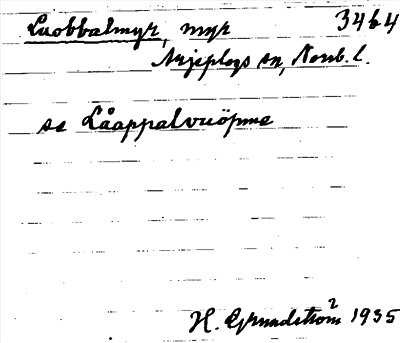 Luobbalmyr, myr 3464
Arjeplogs sn, Norrb. l.
se Låappalvuöpme
H. Grundström 2 1935